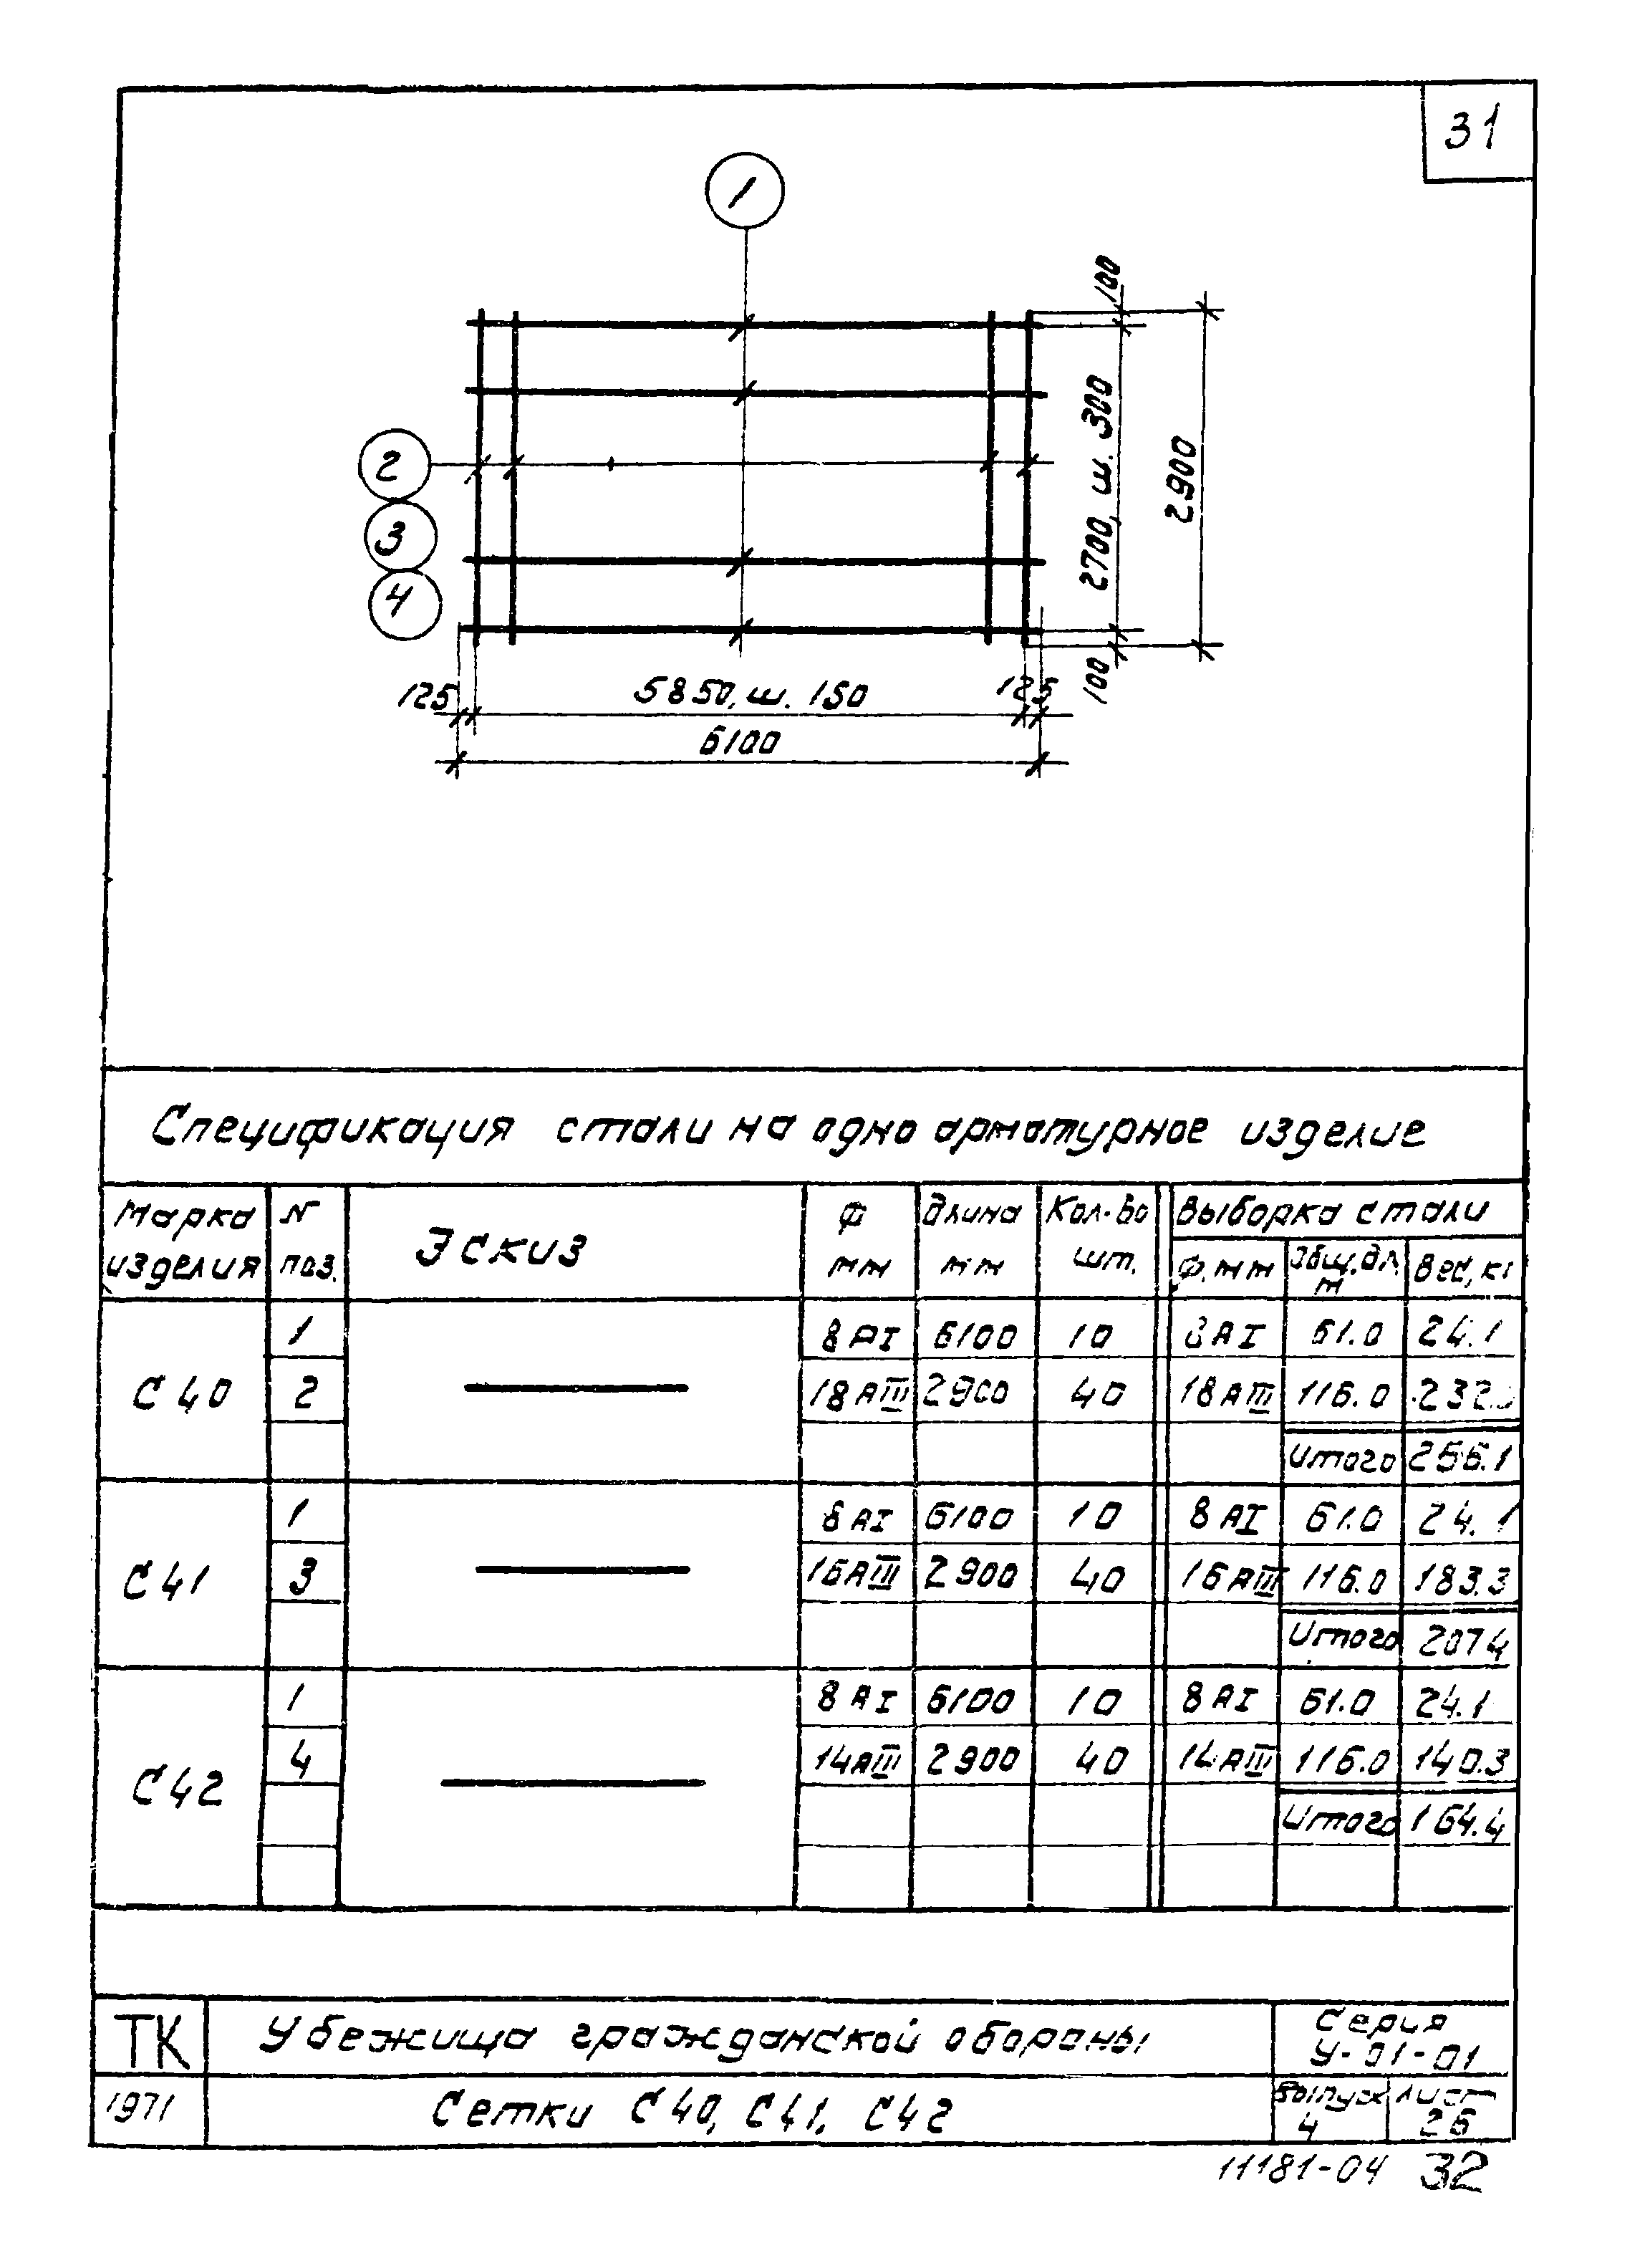 31
1
100
2
3
4
2700, ш. 300
2900
125
5850, ш. 150
125
100
6100
Спецификация стали на одно арматурное изделие
Марка изделия
N поз.
Эскиз
Ф мм
Длина мм
Кол-во шт.
Выборка стали
Ф. мм
Общ. дл. м
Вес, кг
С 40
1 8 АI 6100 10 8 АI 61.0 24.1
2 18 АIII 2900 40 18 АIII 116.0 232.0
Итого 256.1
С 41
1 8 АI 6100 10 8 АI 61.0 24.1
3 16 АIII 2900 40 16 АIII 116.0 183.3
Итого 207.4
С 42
1 8 АI 6100 10 8 АI 61.0 24.1
4 14 АIII 2900 40 14 АIII 116.0 140.3
Итого 164.4
ТК
Убежища гражданской обороны
Серия
У-01-01
1971
Сетки С 40, С 41, С 42
Выпуск
4
лист
26
11181-04 32